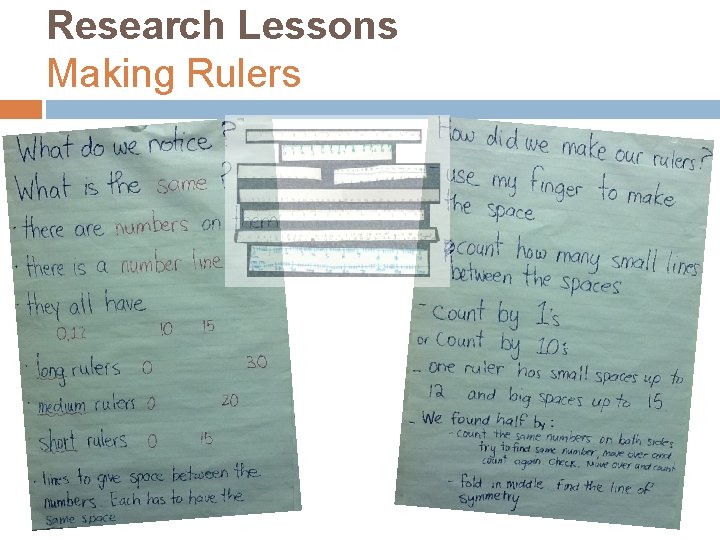 Research Lessons
Making Rulers
What do we notice?
What is the same?
· there are numbers on them
· there is a number line
· they all have
0, 12 10 15
· long rulers 0 30
· medium rulers 0 20
· short rulers 0 15
· lines to give space between the
numbers. Each has to have the
same space
How did we make our rulers?
- use my finger to make
the space
count how many small lines
between the spaces
- Count by 1's
or Count by 10's
- one ruler has small spaces up to
12 and big spaces up to 15
- We found half by:
- count the same numbers on both sides
try to find same number, move over and
count again check. Move over and count
- fold in middle find the line of
symmetry